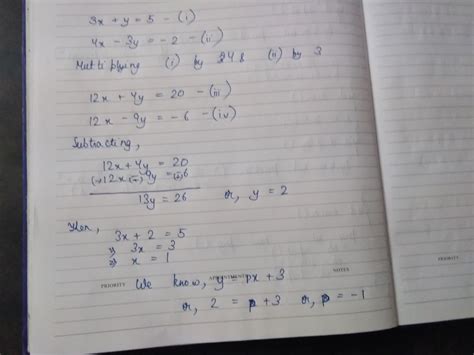 3x + y = 5 - (i)
4x - 3y = -2 - (ii)
Multiplying (i) by 4 & (ii) by 3
12x + 4y = 20 - (iii)
12x - 9y = -6 - (iv)
Subtracting,
12x + 4y = 20
(-)12x (+)- 9y = (+)-6
13y = 26 or, y = 2
Then,
3x + 2 = 5
⇒ 3x = 3
⇒ x = 1
PRIORITY APPOINTMENTS NOTES PRIORITY
We know, y = px + 3
or, 2 = p + 3 or, p = -1